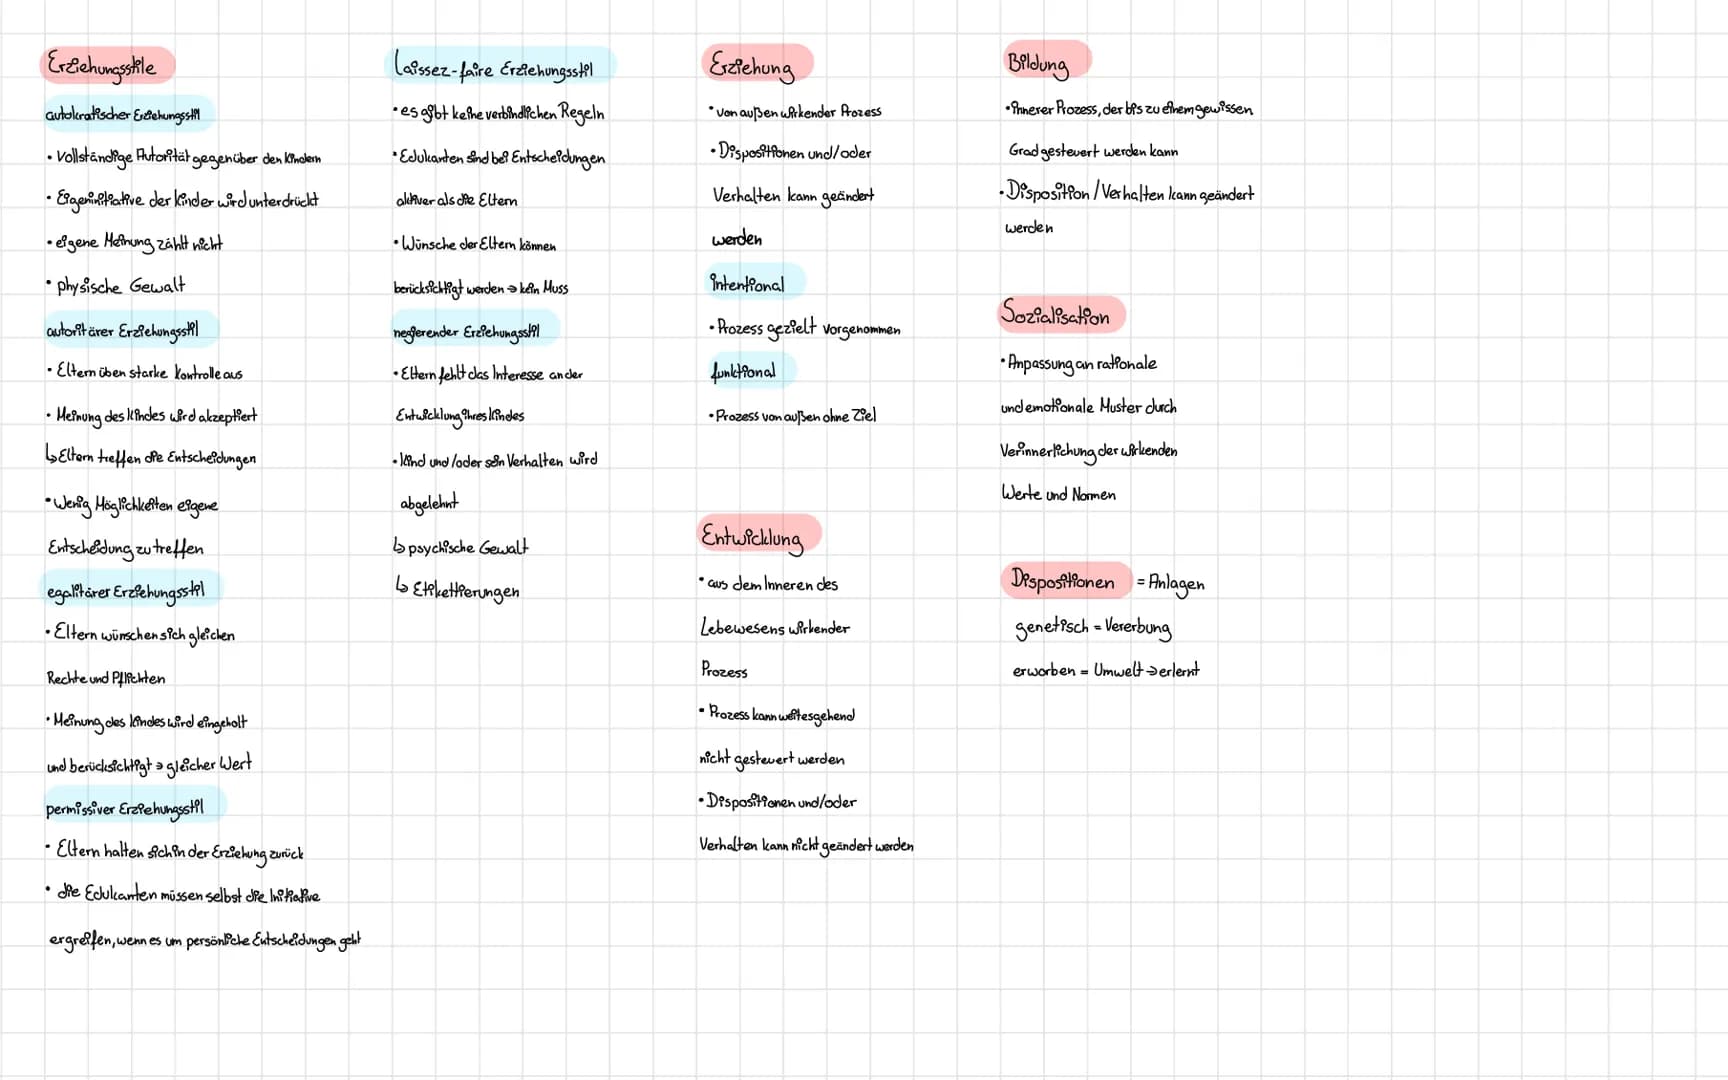 Erziehungsstile
autokratischer Erziehungsstil
• Vollständige Autorität gegenüber den Kindern
• Eigeninitiative der Kinder wird unterdrückt
• eigene Meinung zählt nicht
• physische Gewalt
autoritärer Erziehungsstil
• Eltern üben starke Kontrolle aus
• Meinung des Kindes wird akzeptiert
↳ Eltern treffen die Entscheidungen
• Wenig Möglichkeiten eigene
Entscheidung zu treffen
egalitärer Erziehungsstil
• Eltern wünschen sich gleichen
Rechte und Pflichten
• Meinung des Kindes wird eingeholt
und berücksichtigt → gleicher Wert
permissiver Erziehungsstil
• Eltern halten sich in der Erziehung zurück
• die Edukanten müssen selbst die Initiative
ergreifen, wenn es um persönliche Entscheidungen geht
Laissez-faire Erziehungsstil
• es gibt keine verbindlichen Regeln
• Edukanten sind bei Entscheidungen
aktiver als die Eltern
• Wünsche der Eltern können
berücksichtigt werden → kein Muss
negierender Erziehungsstil
• Eltern fehlt das Interesse an der
Entwicklung ihres Kindes
• Kind und/oder sein Verhalten wird
abgelehnt
↳ psychische Gewalt
↳ Etikettierungen
Erziehung
• von außen wirkender Prozess
• Dispositionen und/oder
Verhalten kann geändert
werden
intentional
• Prozess gezielt vorgenommen
funktional
• Prozess von außen ohne Ziel
Entwicklung
• aus dem Inneren des
Lebewesens wirkender
Prozess
• Prozess kann weitesgehend
nicht gesteuert werden
• Dispositionen und/oder
Verhalten kann nicht geändert werden
Bildung
• innerer Prozess, der bis zu einem gewissen
Grad gesteuert werden kann
• Disposition / Verhalten kann geändert
werden
Sozialisation
• Anpassung an rationale
und emotionale Muster durch
Verinnerlichung der wirkenden
Werte und Normen
Dispositionen = Anlagen
genetisch = Vererbung
erworben = Umwelt → erlernt